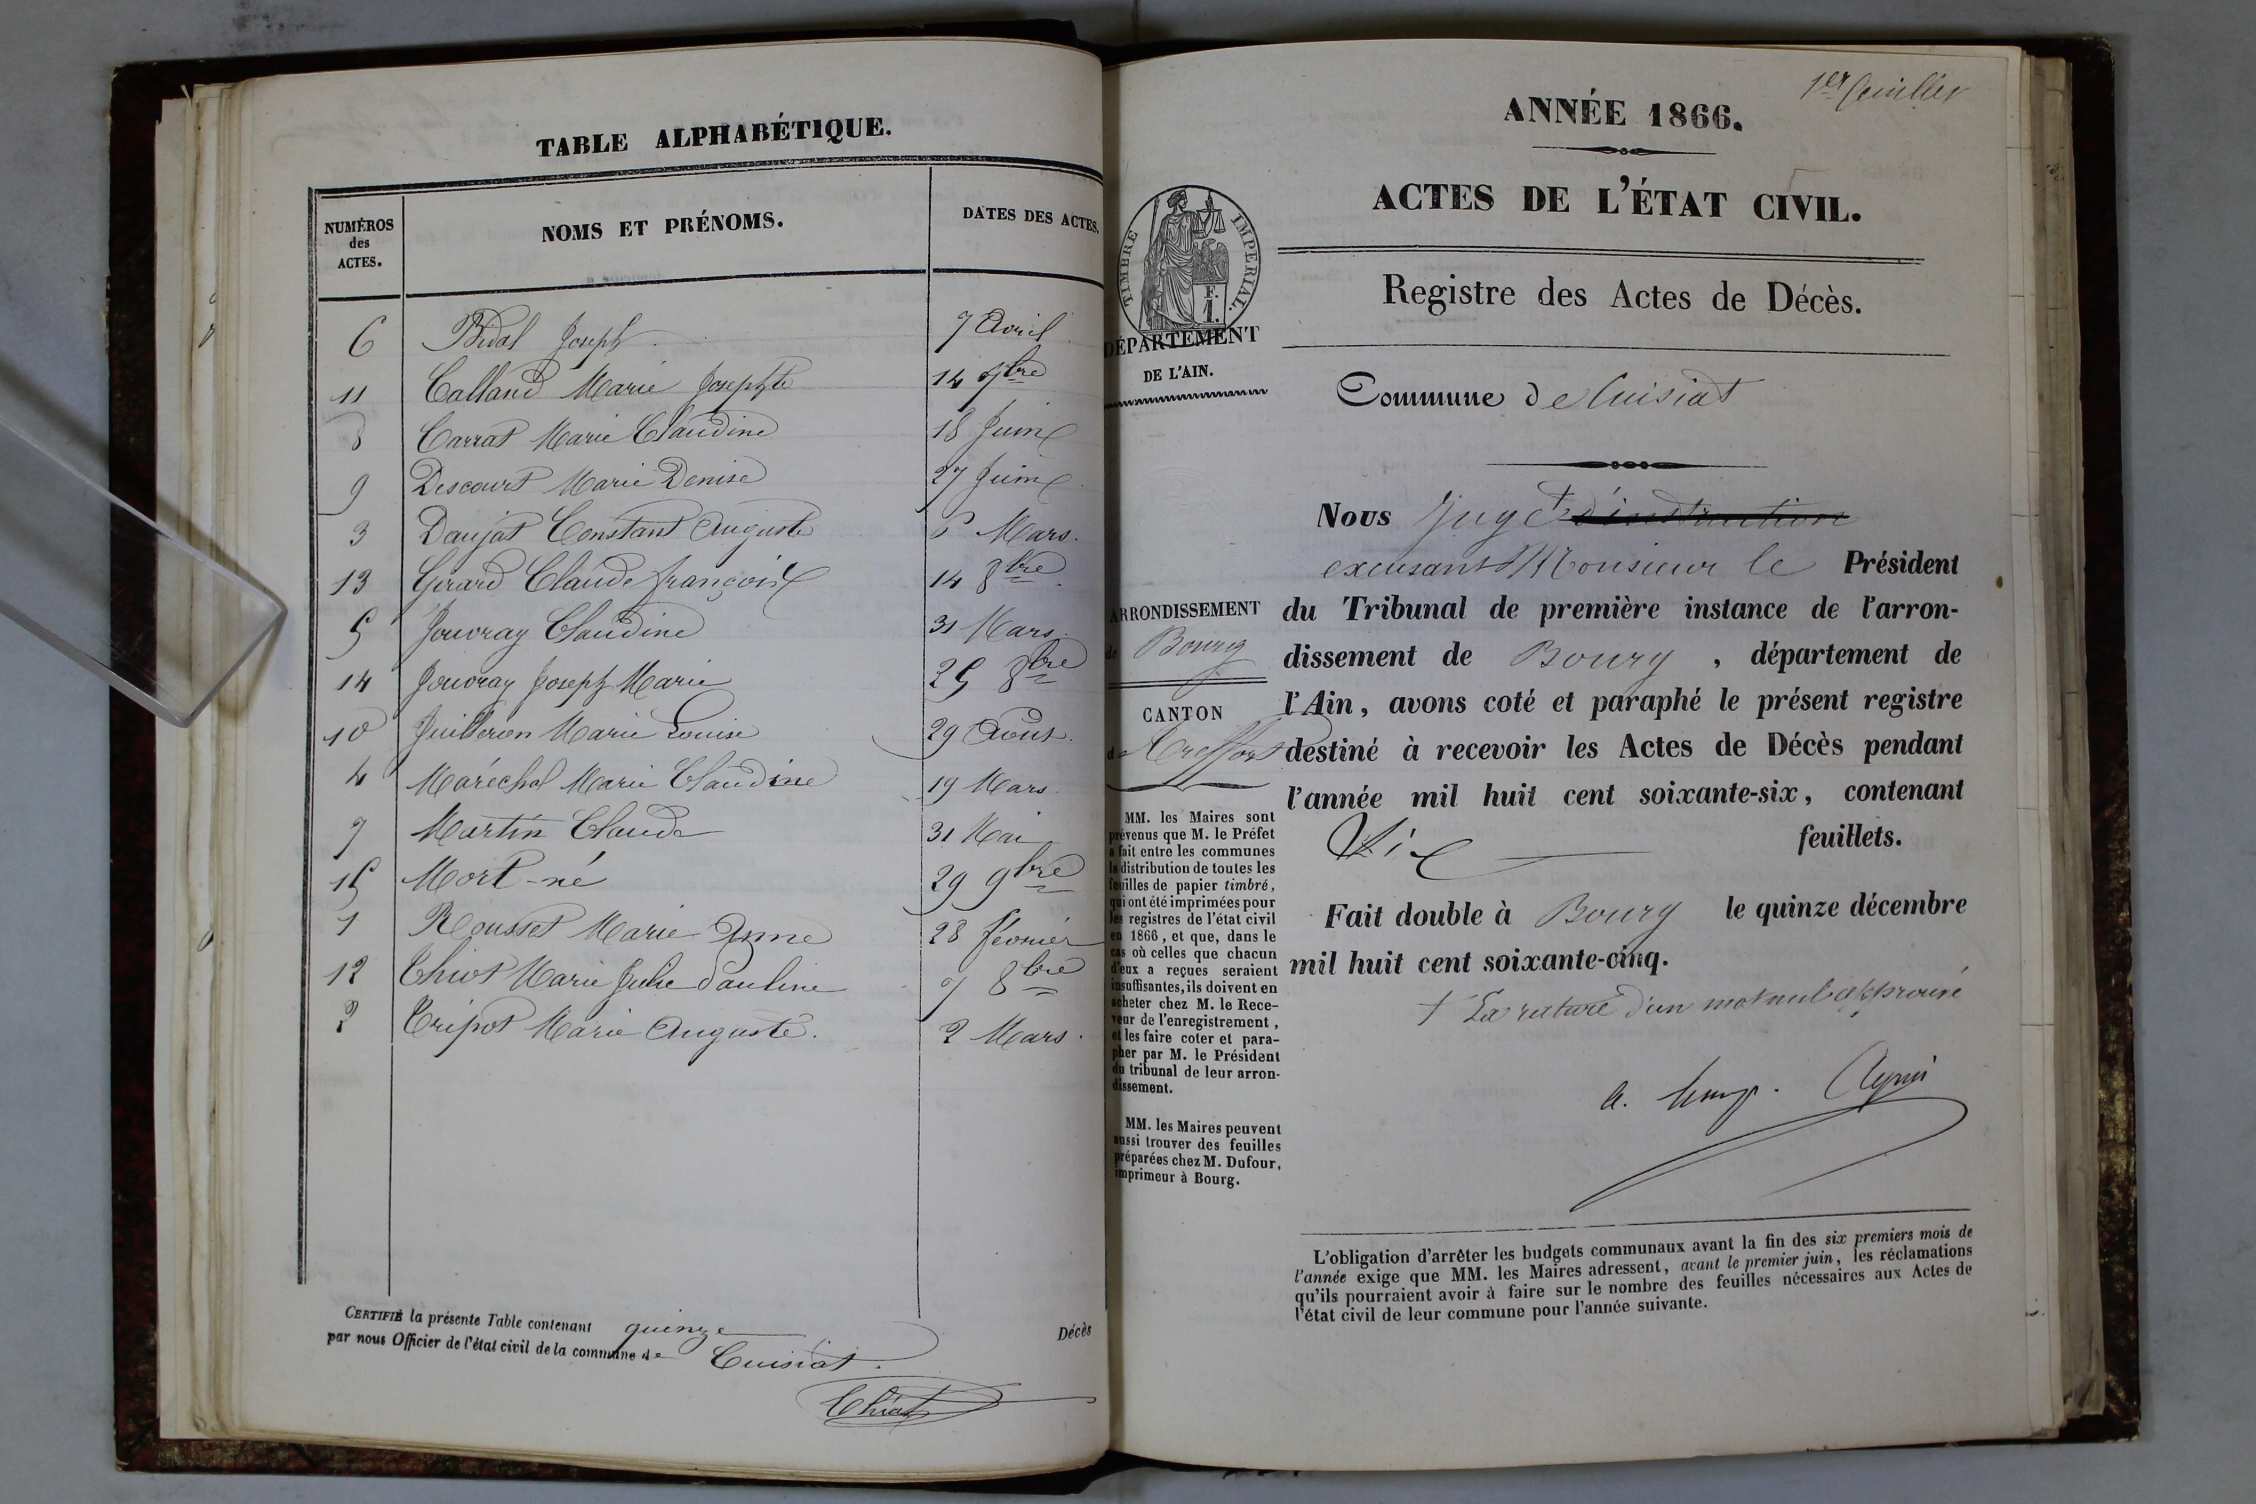 TABLE ALPHABÉTIQUE.
NUMÉROS des ACTES. NOMS ET PRÉNOMS. DATES DES ACTES.
6 Bidal Joseph 7 Avril
11 Calland Marie Josephte 14 7bre
8 Carrat Marie Claudine 18 Juin
9 Descourt Marie Denise 27 Juin
3 Daujat Constant Auguste 6 Mars.
13 Girard Claude françois 14 8bre
5 Jouvray Claudine 31 Mars.
14 Jouvray Joseph Marie 25 8bre
10 Juilleron Marie Louise 29 Août.
4 Maréchal Marie Claudine 19 Mars
7 Martin Claude 31 Mai
15 Mort-né 29 9bre
1 Rousset Marie Anne 28 février
12 Chiot Marie Julie Pauline 7 8bre
2 Tripot Marie Auguste. 2 Mars.
CERTIFIÉ la présente Table contenant quinze Décès
par nous Officier de l'état civil de la commune de Cuisiat.
Chiot
1er feuillet
ANNÉE 1866.
ACTES DE L'ÉTAT CIVIL.
TIMBRE IMPÉRIAL.
F.
1.
DÉPARTEMENT
DE L'AIN.
Registre des Actes de Décès.
Commune de Cuisiat
Nous Juge + d'instruction
excusant Monsieur le Président
du Tribunal de première instance de l'arron-
dissement de Bourg, département de
l'Ain, avons coté et paraphé le présent registre
destiné à recevoir les Actes de Décès pendant
l'année mil huit cent soixante-six, contenant
Six feuillets.
Fait double à Bourg le quinze décembre
mil huit cent soixante-cinq.
+ La rature d'un mot nul approuvé
ARRONDISSEMENT
de Bourg
CANTON
de Treffort
MM. les Maires sont
prévenus que M. le Préfet
a fait entre les communes
la distribution de toutes les
feuilles de papier timbré,
qui ont été imprimées pour
les registres de l'état civil
en 1866, et que, dans le
cas où celles que chacun
d'eux a reçues seraient
insuffisantes, ils doivent en
acheter chez M. le Rece-
veur de l'enregistrement,
et les faire coter et para-
pher par M. le Président
du tribunal de leur arron-
dissement.
MM. les Maires peuvent
aussi trouver des feuilles
préparées chez M. Dufour,
imprimeur à Bourg.
L'obligation d'arrêter les budgets communaux avant la fin des six premiers mois de
l'année exige que MM. les Maires adressent, avant le premier juin, les réclamations
qu'ils pourraient avoir à faire sur le nombre des feuilles nécessaires aux Actes de
l'état civil de leur commune pour l'année suivante.